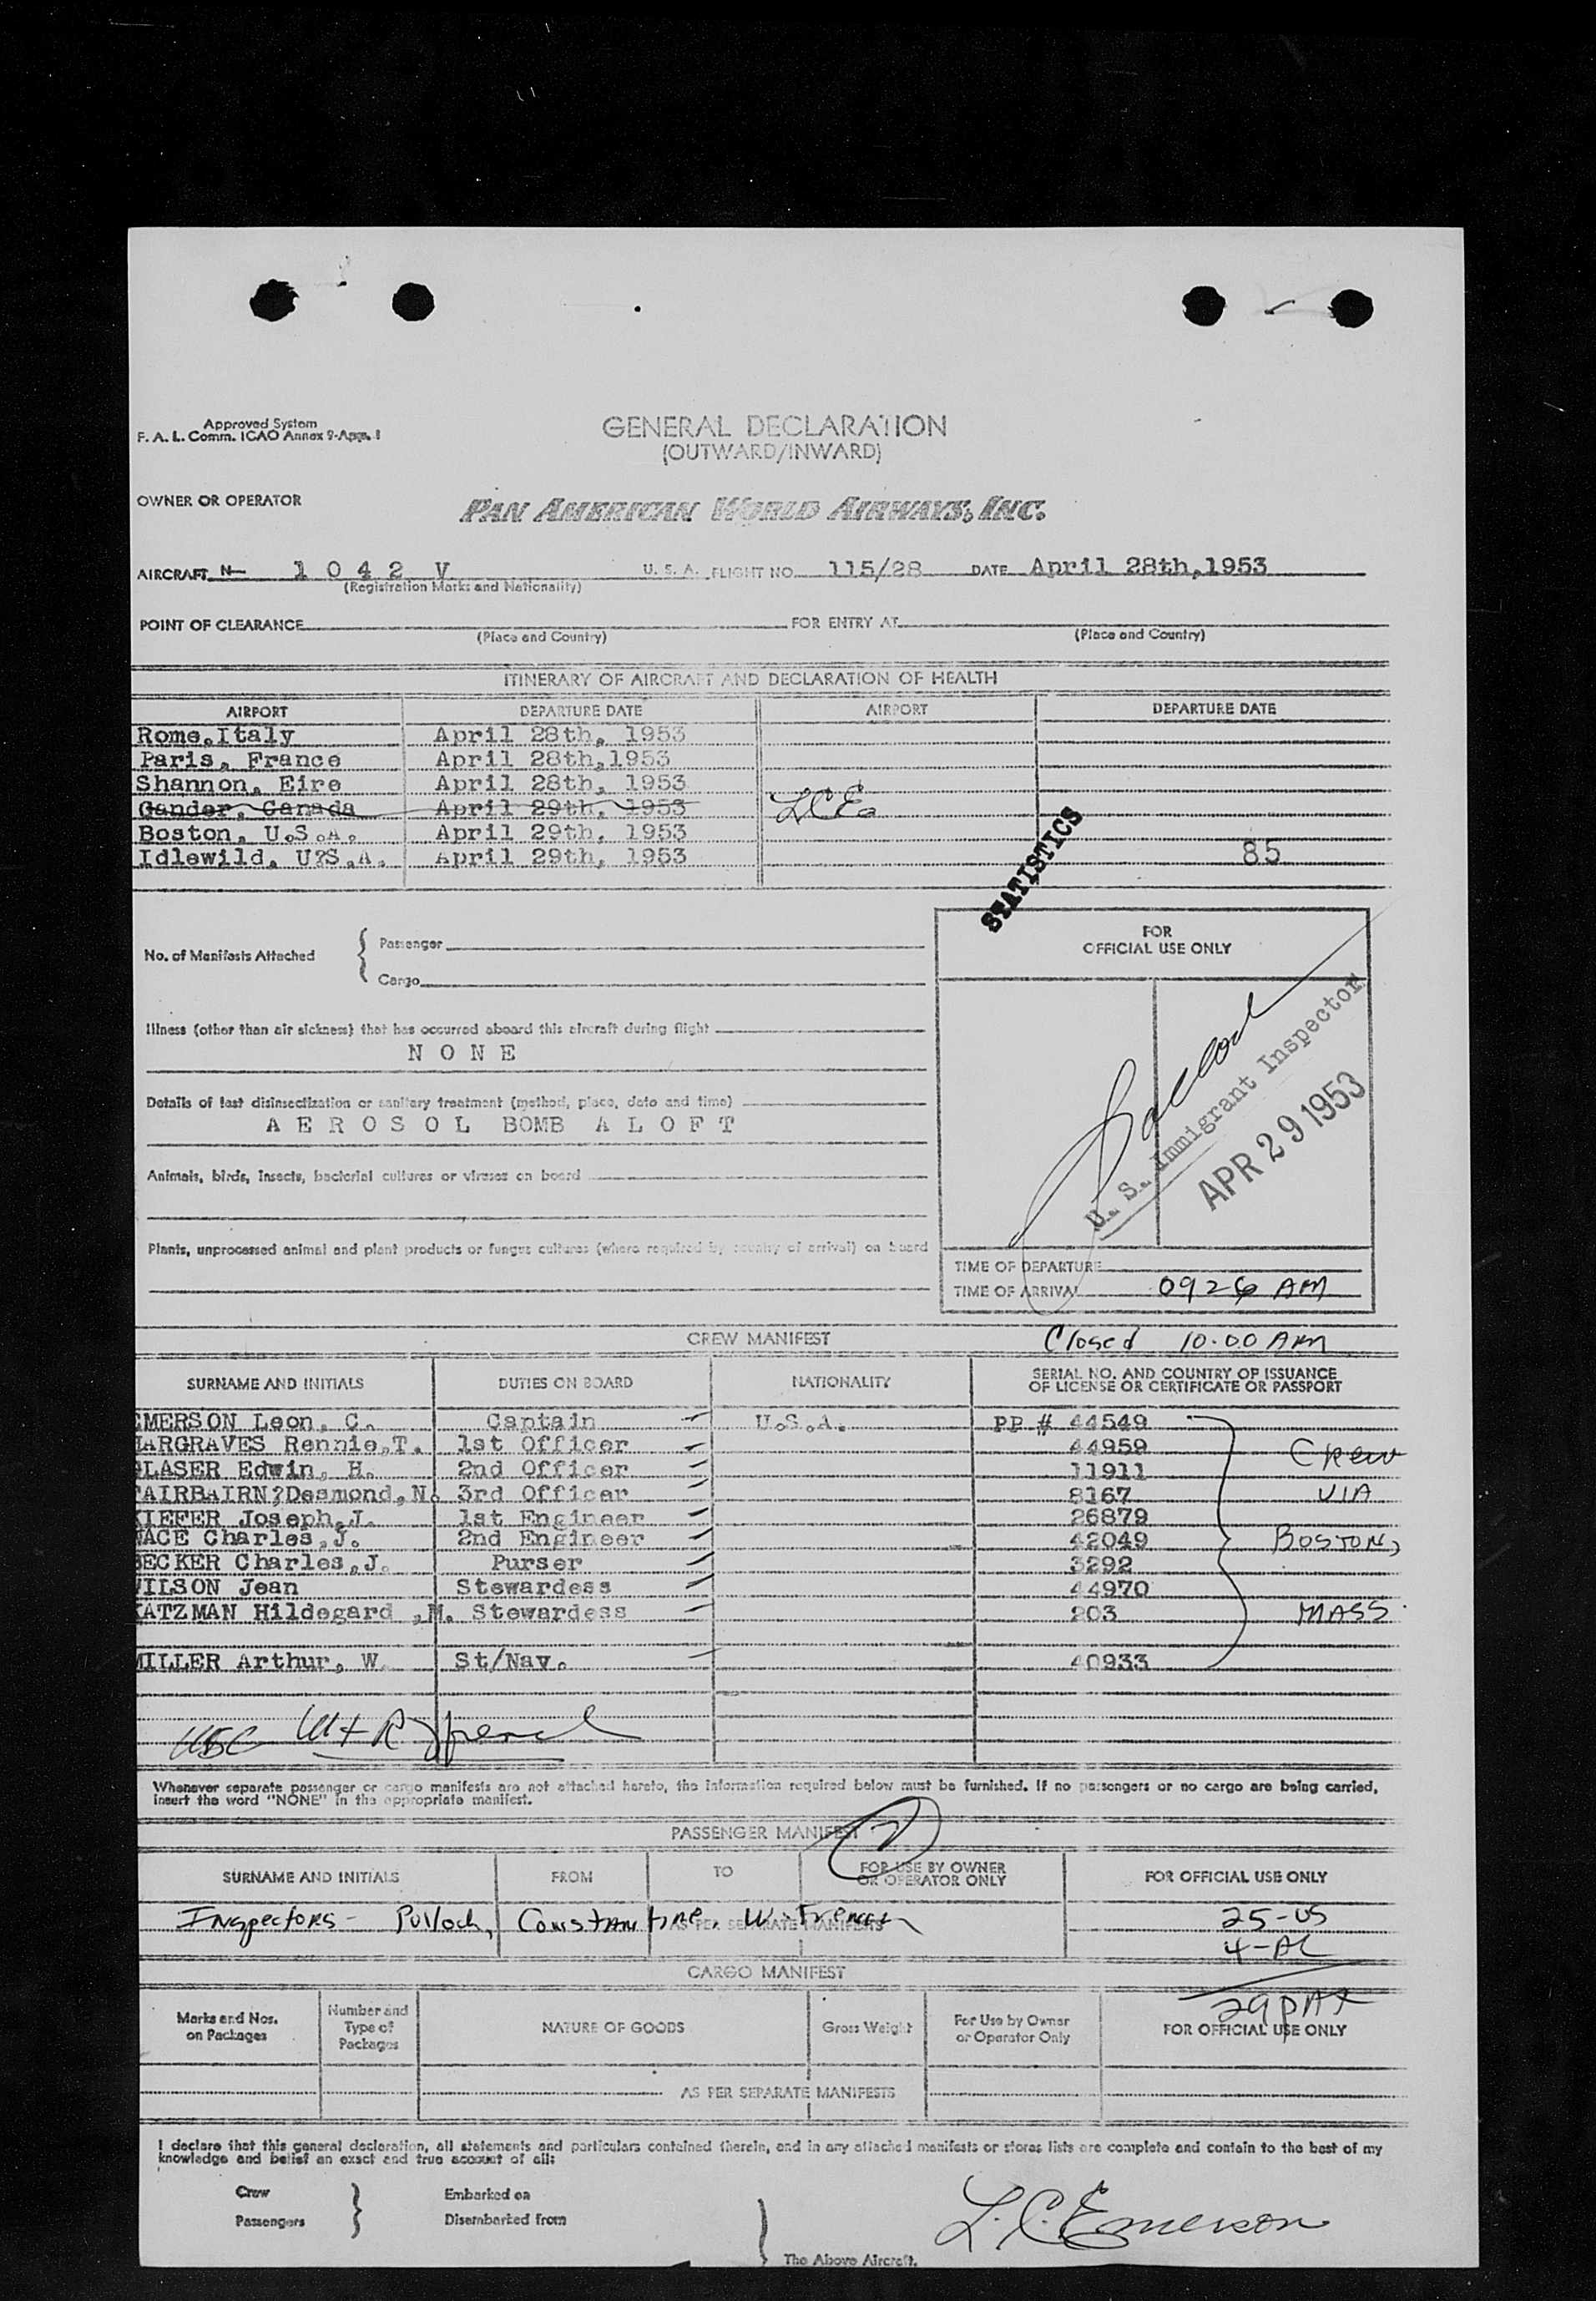 Approved System
F. A. L. Comm. ICAO Annex 9-App. 1
GENERAL DECLARATION
(OUTWARD/INWARD)
OWNER OR OPERATOR
PAN AMERICAN WORLD AIRWAYS, INC.
AIRCRAFT N- 1 0 4 2 V U. S. A. FLIGHT NO. 115/28 DATE April 28th,1953
(Registration Marks and Nationality)
POINT OF CLEARANCE FOR ENTRY AT
(Place and Country) (Place and Country)
ITINERARY OF AIRCRAFT AND DECLARATION OF HEALTH
AIRPORT DEPARTURE DATE AIRPORT DEPARTURE DATE
Rome,Italy April 28th, 1953
Paris, France April 28th,1953
Shannon, Eire April 28th, 1953
Gander, Canada April 29th, 1953 LCE
Boston, U.S.A. April 29th, 1953
Idlewild, U?S.A. April 29th, 1953 85
STATISTICS
FOR
OFFICIAL USE ONLY
No. of Manifests Attached { Passenger
Cargo
Illness (other than air sickness) that has occurred aboard this aircraft during flight
N O N E
Details of last disinsectization or sanitary treatment (method, place, date and time)
A E R O S O L BOMB A L O F T
Animals, birds, insects, bacterial cultures or viruses on board
Plants, unprocessed animal and plant products or fungus cultures (where required by country of arrival) on board
U. S. Immigrant Inspector
APR 29 1953
TIME OF DEPARTURE
TIME OF ARRIVAL 0926 AM
CREW MANIFEST Closed 10.00 AM
SURNAME AND INITIALS DUTIES ON BOARD NATIONALITY SERIAL NO. AND COUNTRY OF ISSUANCE
OF LICENSE OR CERTIFICATE OR PASSPORT
EMERSON Leon, C. Captain U.S.A. PP # 44549
HARGRAVES Rennie,T. 1st Officer 44959 Crew
GLASER Edwin, H. 2nd Officer 11911
FAIRBAIRN?Desmond,N. 3rd Officer 8167 VIA
KIEFER Joseph,J. 1st Engineer 26879
Charles,J. 2nd Engineer 42049 BOSTON,
BECKER Charles,J. Purser 3292
WILSON Jean Stewardess 44970
KATZMAN Hildegard ,M. Stewardess 203 MASS
MILLER Arthur, W. St/Nav. 40933
Whenever separate passenger or cargo manifests are not attached hereto, the information required below must be furnished. If no passengers or no cargo are being carried,
insert the word "NONE" in the appropriate manifest.
PASSENGER MANIFEST
SURNAME AND INITIALS FROM TO FOR USE BY OWNER
OR OPERATOR ONLY FOR OFFICIAL USE ONLY
AS PER SEPARATE MANIFESTS
Inspectors - Pollock, Constantine, W. French 25-US
4-AL
CARGO MANIFEST
29 PAX
Marks and Nos.
on Packages Number and
Type of
Packages NATURE OF GOODS Gross Weight For Use by Owner
or Operator Only FOR OFFICIAL USE ONLY
AS PER SEPARATE MANIFESTS
I declare that this general declaration, all statements and particulars contained therein, and in any attached manifests or stores lists are complete and contain to the best of my
knowledge and belief an exact and true account of all:
Crew Embarked on
Passengers Disembarked from
L. C. Emerson
The Above Aircraft.